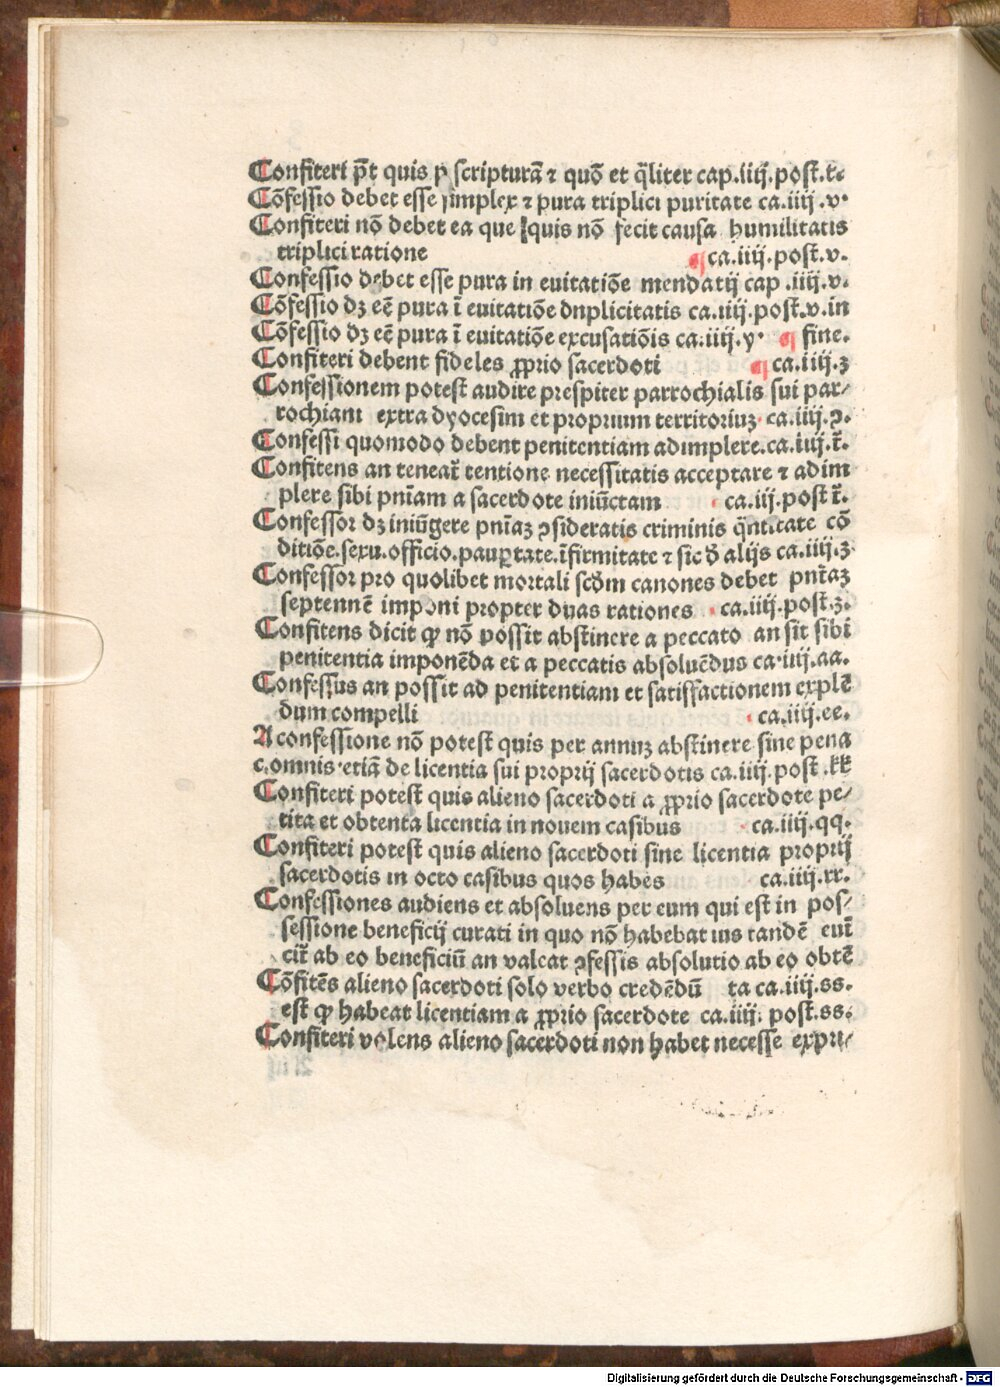 Confiteri p̄t quis ꝑ scripturā ⁊ quō et q̄liter cap.iiij.post.t.
Cōfessio debet esse simplex ⁊ pura triplici puritate ca.iiij.v.
Confiteri nō debet ea que quis nō fecit causa humilitatis
triplici ratione ca.iiij.post.v.
Confessio debet esse pura in euitatiōe mendatij cap.iiij.v.
Cōfessio dꝫ eē pura ī euitatiōe dnplicitatis ca.iiij.post.v.in
Cōfessio dꝫ eē pura ī euitatiōe excusatiōis ca.iiij.y. fine.
Confiteri debent fideles ꝓprio sacerdoti ca.iiij.ꝫ
Confessionem potest audire prespiter parrochialis sui par/
rochiani extra dyocesim et proprium territoriuꝫ ca.iiij.ꝯ.
Confessi quomodo debent penitentiam adimplere.ca.iiij.r̄.
Confitens an teneat̄ tentione necessitatis acceptare ⁊ adim
plere sibi pnīam a sacerdote iniūctam ca.iij.post r̄.
Confessor dꝫ iniūgere pnīaꝫ ꝯsideratis criminis q̄ntitate cō
ditiōe.sexu.officio.paupꝑtate.īfirmitate ⁊ sic ð alijs ca.iiij.ꝫ
Confessor pro quolibet mortali scðm canones debet pnīaꝫ
septennē imponi propter duas rationes ca.iiij.post.ꝫ.
Confitens dicit ꝙ nō possit abstinere a peccato an sit sibi
penitentia imponēda et a peccatis absoluēdus ca.iiij.aa.
Confessus an possit ad penitentiam et satisfactionem explē
dum compelli ca.iiij.ee.
A confessione nō potest quis per annuꝫ abstinere sine pena
c.omnis.etiā de licentia sui proprij sacerdotis ca.iiij.post.kk
Confiteri potest quis alieno sacerdoti a ꝓprio sacerdote pe/
tita et obtenta licentia in nouem casibus ca.iiij.qq.
Confiteri potest quis alieno sacerdoti sine licentia proprij
sacerdotis in octo casibus quos habes ca.iiij.rr.
Confessiones audiens et absoluens per eum qui est in pos/
sessione beneficij curati in quo nō habebat ius tandē euī
cit̄ ab eo beneficiū an valeat ꝯfessis absolutio ab eo obtē
Cōfitēs alieno sacerdoti solo verbo credēdū ta ca.iiij.ss.
est ꝙ habeat licentiam a ꝓprio sacerdote ca.iiij. post.ss.
Confiteri volens alieno sacerdoti non habet necesse expri/
Digitalisierung gefördert durch die Deutsche Forschungsgemeinschaft - DFG